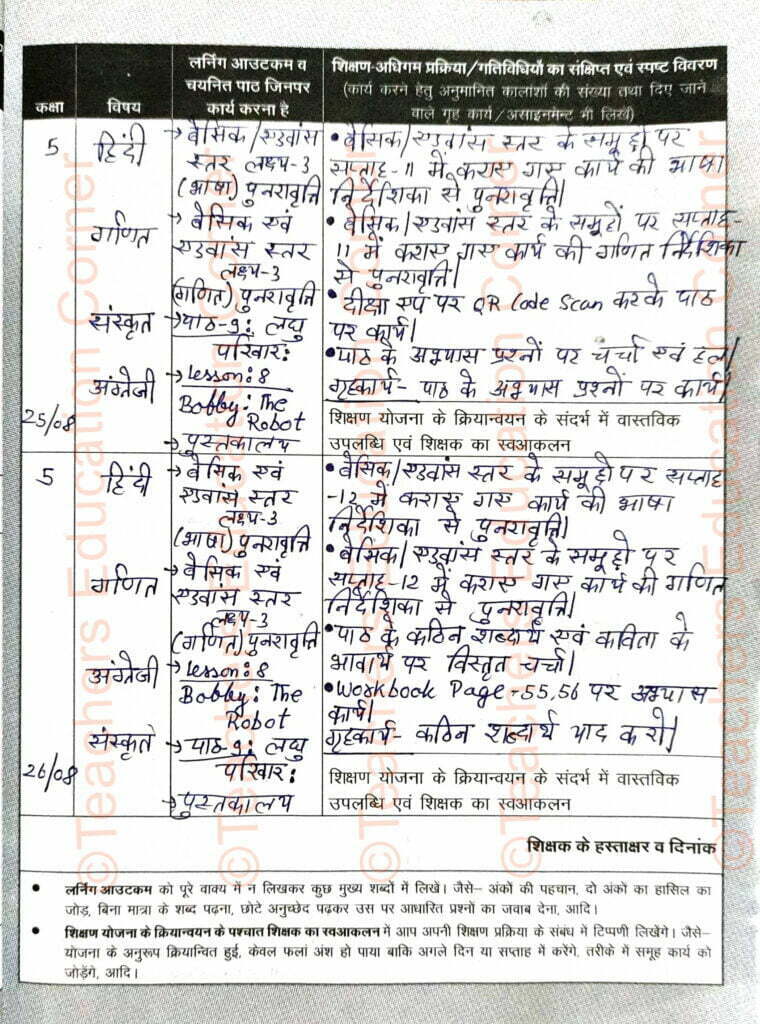 कक्षा
विषय
लर्निंग आउटकम व
चयनित पाठ जिनपर
कार्य करना है
शिक्षण-अधिगम प्रक्रिया/गतिविधियों का संक्षिप्त एवं स्पष्ट विवरण
(कार्य करने हेतु अनुमानित कालांशों की संख्या तथा दिए जाने
वाले गृह कार्य/असाइनमेन्ट भी लिखें)
5
हिंदी
→ बेसिक/एडवांस
स्तर लक्ष्य-3
(भाषा) पुनरावृत्ति
• बेसिक/एडवांस स्तर के समूहों पर
सप्ताह-11 में कराए गए कार्य की भाषा
निर्देशिका से पुनरावृत्ति।
गणित
→ बेसिक एवं
एडवांस स्तर
लक्ष्य-3
(गणित) पुनरावृत्ति
• बेसिक/एडवांस स्तर के समूहों पर सप्ताह-
11 में कराए गए कार्य की गणित निर्देशिका
से पुनरावृत्ति।
संस्कृत
→ पाठ-9: लघु
परिवार:
• दीक्षा एप पर QR Code Scan करके पाठ
पर कार्य।
अंग्रेजी
→ Lesson: 8
Bobby: The
Robot
→ पुस्तकालय
• पाठ के अभ्यास प्रश्नों पर चर्चा एवं हल।
गृहकार्य- पाठ के अभ्यास प्रश्नों पर कार्य।
25/08
शिक्षण योजना के क्रियान्वयन के संदर्भ में वास्तविक
उपलब्धि एवं शिक्षक का स्वआकलन
5
हिंदी
→ बेसिक एवं
एडवांस स्तर
लक्ष्य-3
(भाषा) पुनरावृत्ति
• बेसिक/एडवांस स्तर के समूहों पर सप्ताह
-12 में कराए गए कार्य की भाषा
निर्देशिका से पुनरावृत्ति।
गणित
→ बेसिक एवं
एडवांस स्तर
लक्ष्य-3
(गणित) पुनरावृत्ति
• बेसिक/एडवांस स्तर के समूहों पर
सप्ताह-12 में कराए गए कार्य की गणित
निर्देशिका से पुनरावृत्ति।
अंग्रेजी
→ Lesson: 8
Bobby: The
Robot
• पाठ के कठिन शब्दार्थ एवं कविता के
भावार्थ पर विस्तृत चर्चा।
• Workbook Page -55,56 पर अभ्यास
कार्य।
संस्कृत
→ पाठ-9: लघु
परिवार:
→ पुस्तकालय
गृहकार्य- कठिन शब्दार्थ याद करो।
26/08
शिक्षण योजना के क्रियान्वयन के संदर्भ में वास्तविक
उपलब्धि एवं शिक्षक का स्वआकलन
शिक्षक के हस्ताक्षर व दिनांक
• लर्निंग आउटकम को पूरे वाक्य में न लिखकर कुछ मुख्य शब्दों में लिखें। जैसे– अंकों की पहचान, दो अंकों का हासिल का
जोड़, बिना मात्रा के शब्द पढ़ना, छोटे अनुच्छेद पढ़कर उस पर आधारित प्रश्नों का जवाब देना, आदि।
• शिक्षण योजना के क्रियान्वयन के पश्चात शिक्षक का स्वआकलन में आप अपनी शिक्षण प्रक्रिया के संबंध में टिप्पणी लिखेंगे। जैसे–
योजना के अनुरूप क्रियान्वित हुई, केवल फलां अंश हो पाया बाकि अगले दिन या सप्ताह में करेंगे, तरीके में समूह कार्य को
जोड़ेंगे, आदि।
©Teachers Education Corner
©Teachers Education Corner
©Teachers Education Corner
©Teachers Education Corner
©Teachers Education Corner